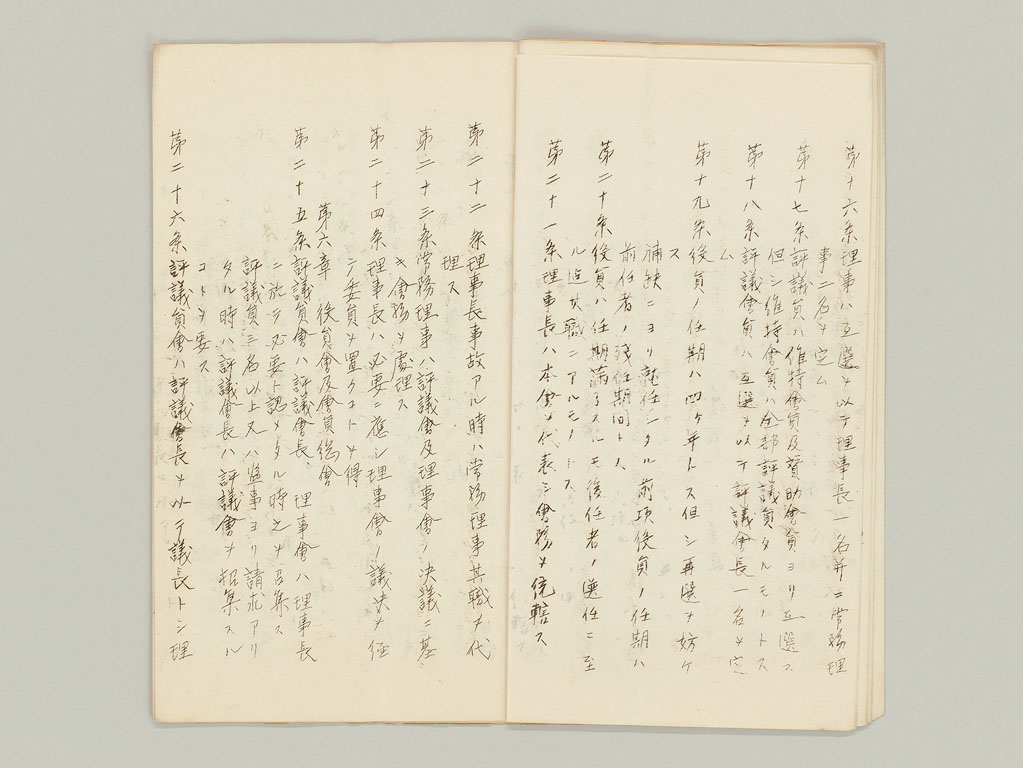 第十六条理事ハ互選ヲ以テ理事長一名并ニ常務理
事二名ヲ定ム
第十七条評議員ハ維持會員及賛助會員ヨリ互選ス
但シ維持會員ハ全部評議員タルモノトス
第十八条評議會員ハ互選ヲ以テ評議會長一名ヲ定
ム
第十九条役員ノ任期ハ四ケ年トス但シ再選ヲ妨ケ
ス
補缺ニヨリ就任シタル前項役員ノ任期ハ
前任者ノ残任期間トス
第二十条役員ハ任期満了スルモ後任者ノ選任ニ至
ル迄其職ニアルモノトス
第二十一条理事長ハ本會ヲ代表シ會務ヲ統轄ス
第二十二条理事長事故アル時ハ常務理事其職ヲ代
理ス
第二十三条常務理事ハ評議會及理事會ノ決議ニ基
キ會務ヲ處理ス
第二十四条理事長ハ必要ニ應シ理事會ノ議決ヲ経
テ委員ヲ置クコトヲ得
第六章 役員會及會員総會
第二十五条評議員會ハ評議會長、理事會ハ理事長
ニ於テ必要ト認メタル時之ヲ召集ス
評議員三名以上又ハ監事ヨリ請求アリ
タル時ハ評議會長ハ評議會ヲ招集スル
コトヲ要ス
第二十六条評議員會ハ評議會長ヲ以テ議長トシ理